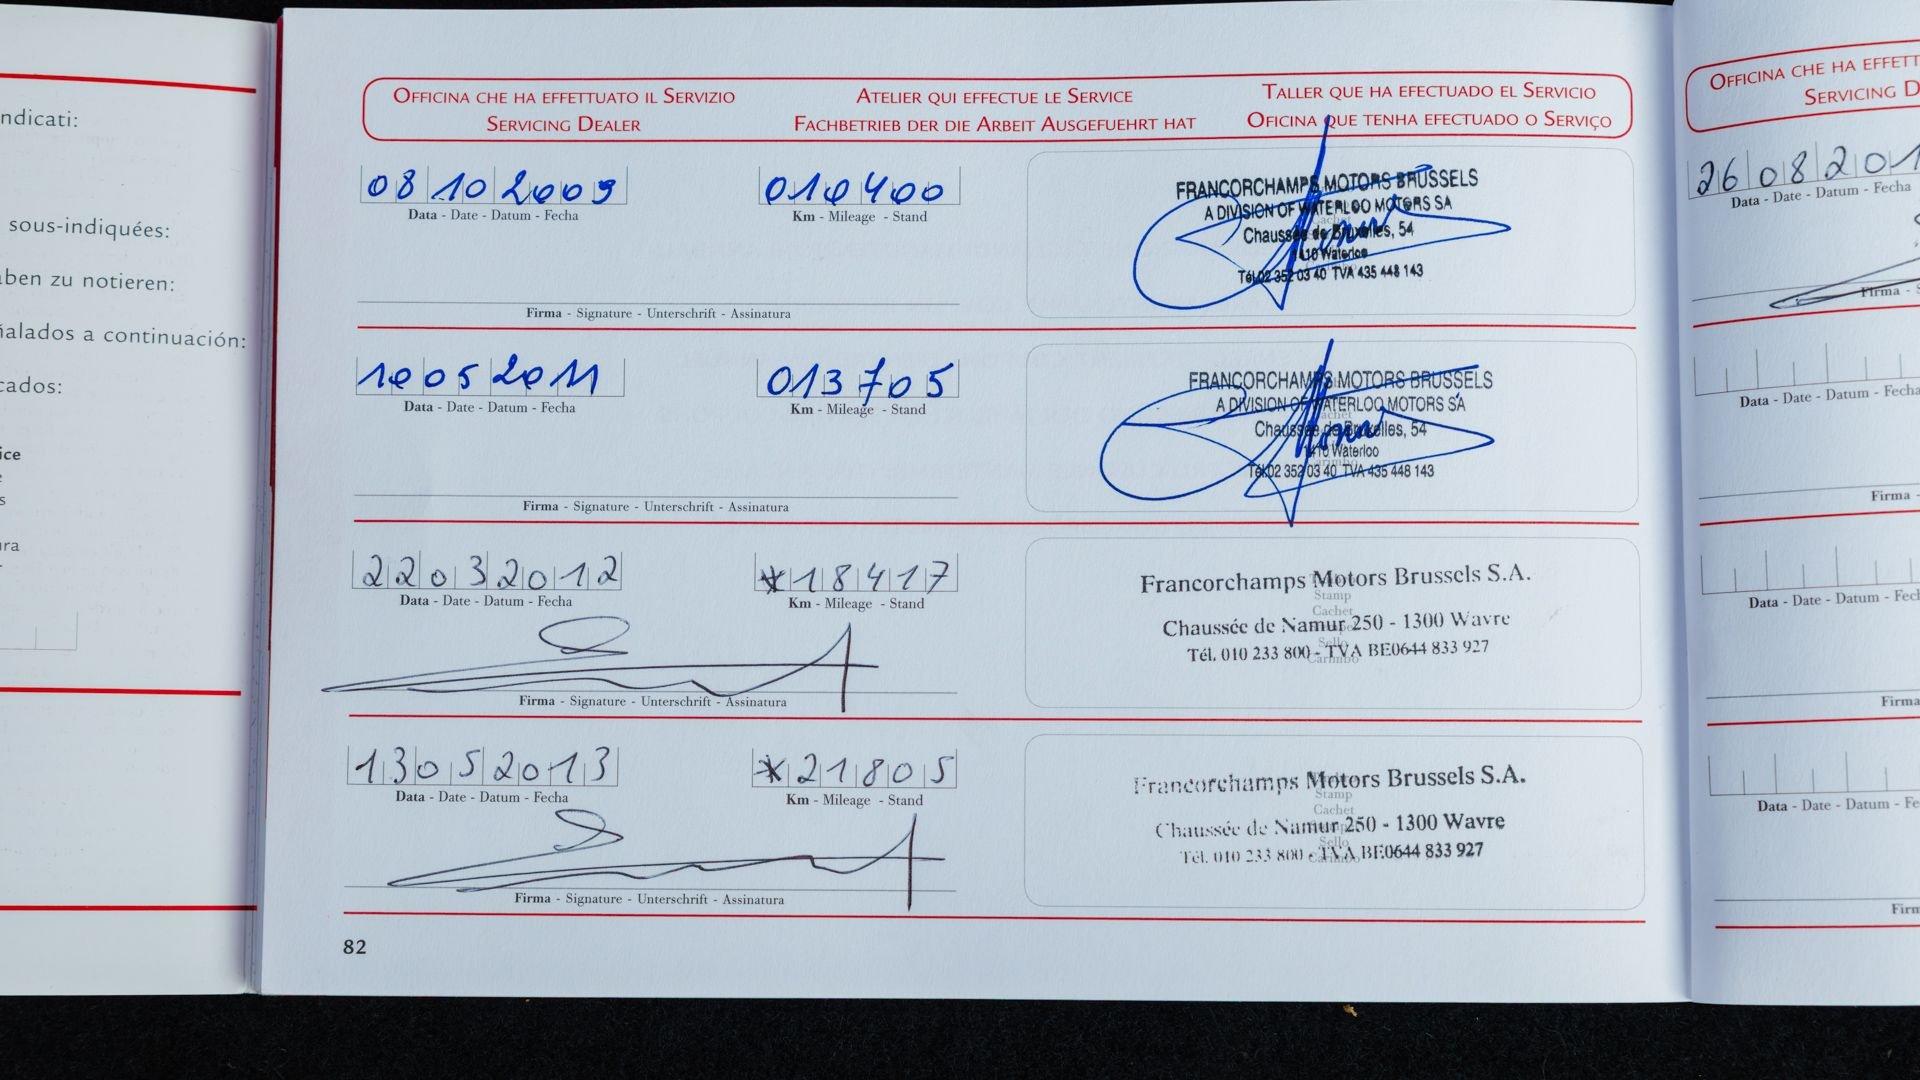 ndicati:
sous-indiquées:
aben zu notieren:
ñalados a continuación:
cados:
ice
e
s
ura
OFFICINA CHE HA EFFETTUATO IL SERVIZIO
SERVICING DEALER
ATELIER QUI EFFECTUE LE SERVICE
FACHBETRIEB DER DIE ARBEIT AUSGEFUEHRT HAT
TALLER QUE HA EFECTUADO EL SERVICIO
OFICINA QUE TENHA EFECTUADO O SERVIÇO
08 10 2009
Data - Date - Datum - Fecha
010400
Km - Mileage - Stand
Firma - Signature - Unterschrift - Assinatura
FRANCORCHAMPS MOTORS BRUSSELS
A DIVISION OF WATERLOO MOTORS SA
Chaussée de Bruxelles, 54
1410 Waterloo
Tél.02 352 03 40 TVA 435 448 143
10 05 2011
Data - Date - Datum - Fecha
013705
Km - Mileage - Stand
Firma - Signature - Unterschrift - Assinatura
FRANCORCHAMPS MOTORS BRUSSELS
A DIVISION OF WATERLOO MOTORS SA
Cachet
Chaussée de Bruxelles, 54
1410 Waterloo
Carimbo
Tél.02 352 03 40 TVA 435 448 143
22032012
Data - Date - Datum - Fecha
*18417
Km - Mileage - Stand
Firma - Signature - Unterschrift - Assinatura
Francorchamps Motors Brussels S.A.
Stamp
Cachet
Chaussée de Namur 250 - 1300 Wavre
Sello
Tél. 010 233 800 - TVA BE0644 833 927
Carimbo
13052013
Data - Date - Datum - Fecha
*21805
Km - Mileage - Stand
Firma - Signature - Unterschrift - Assinatura
Francorchamps Motors Brussels S.A.
Stamp
Cachet
Chaussée de Namur 250 - 1300 Wavre
Sello
Tél. 010 233 800 - TVA BE0644 833 927
82
OFFICINA CHE HA EFFETT
SERVICING D
26 08 201
Data - Date - Datum - Fecha
Firma - S
Data - Date - Datum - Fecha
Firma -
Data - Date - Datum - Fech
Firma
Data - Date - Datum - Fe
Firm